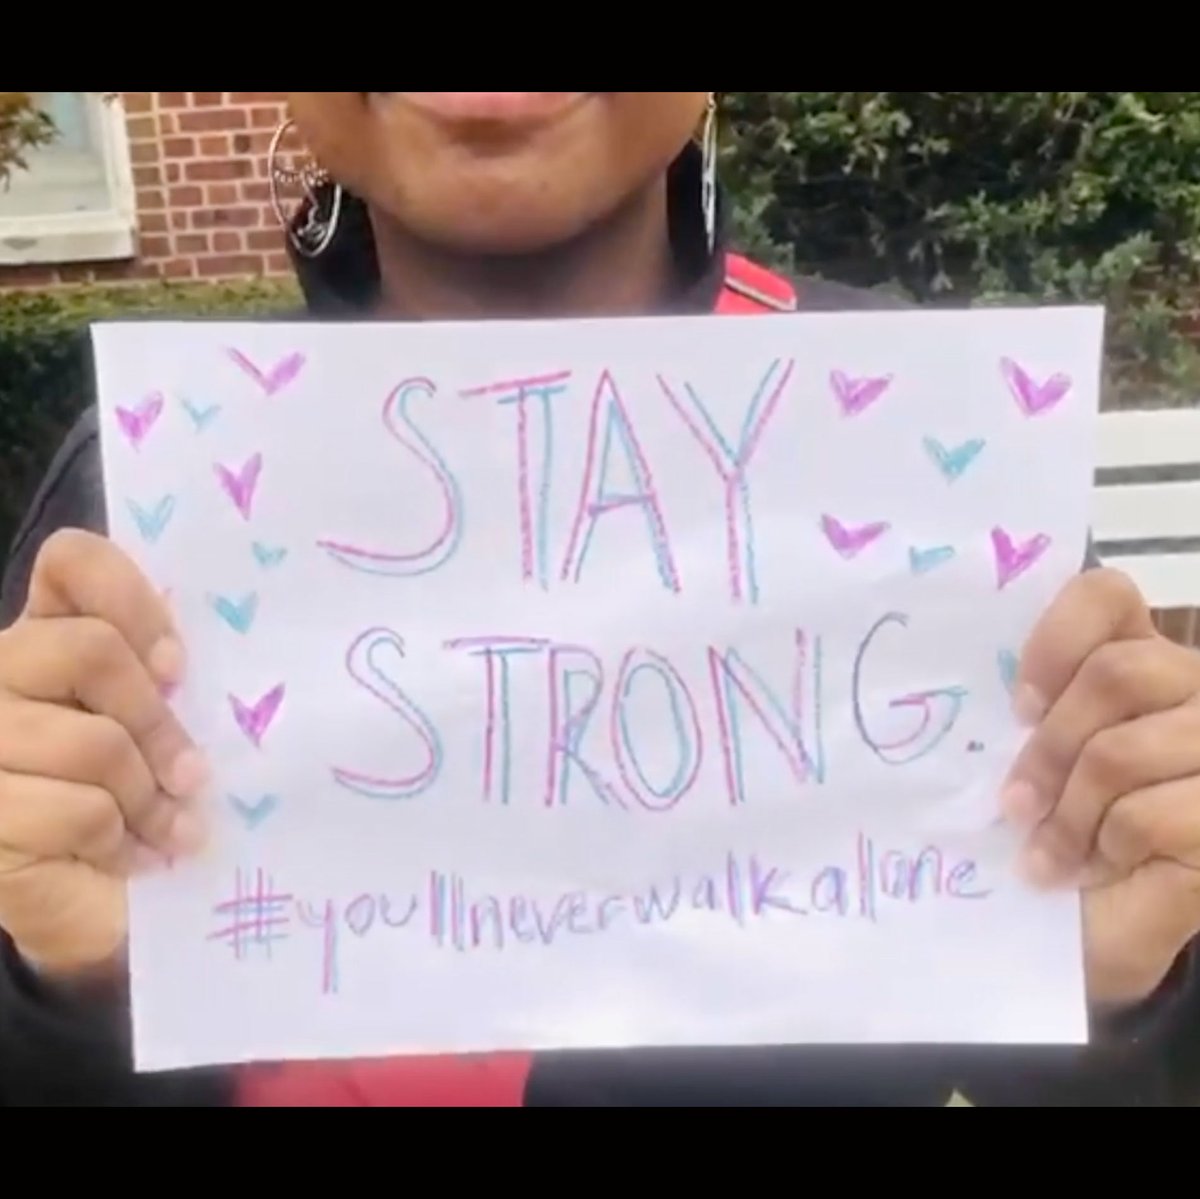 STAY
STRONG.
#youllneverwalkalone